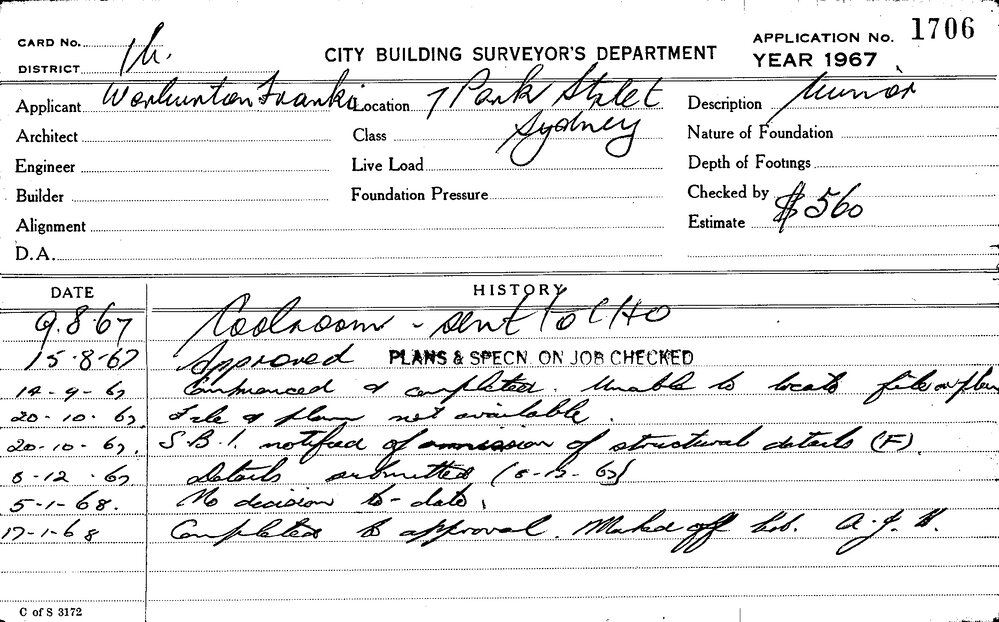 CARD No.
DISTRICT
CITY BUILDING SURVEYOR'S DEPARTMENT
APPLICATION No. 1706
YEAR 1967
Applicant Frankie Location 7 Park Street Sydney Description Minor
Architect Class Nature of Foundation
Engineer Live Load Depth of Footings
Builder Foundation Pressure Checked by
Alignment Estimate $560
D.A.
DATE HISTORY
9.8.67 Coolroom - sent to CHO
15-8-67 Approved PLANS & SPECN. ON JOB CHECKED
14-9-67 Commenced & completed. Unable to locate file or plan
20-10-67 File & plan not available.
20-10-67. S.B.I. notified of omission of structural details (F).
8-12-67 details submitted (8-12-67)
5-1-68. No decision to-date.
17-1-68 Completed to approval. Marked off A.J.H.
C of S 3172